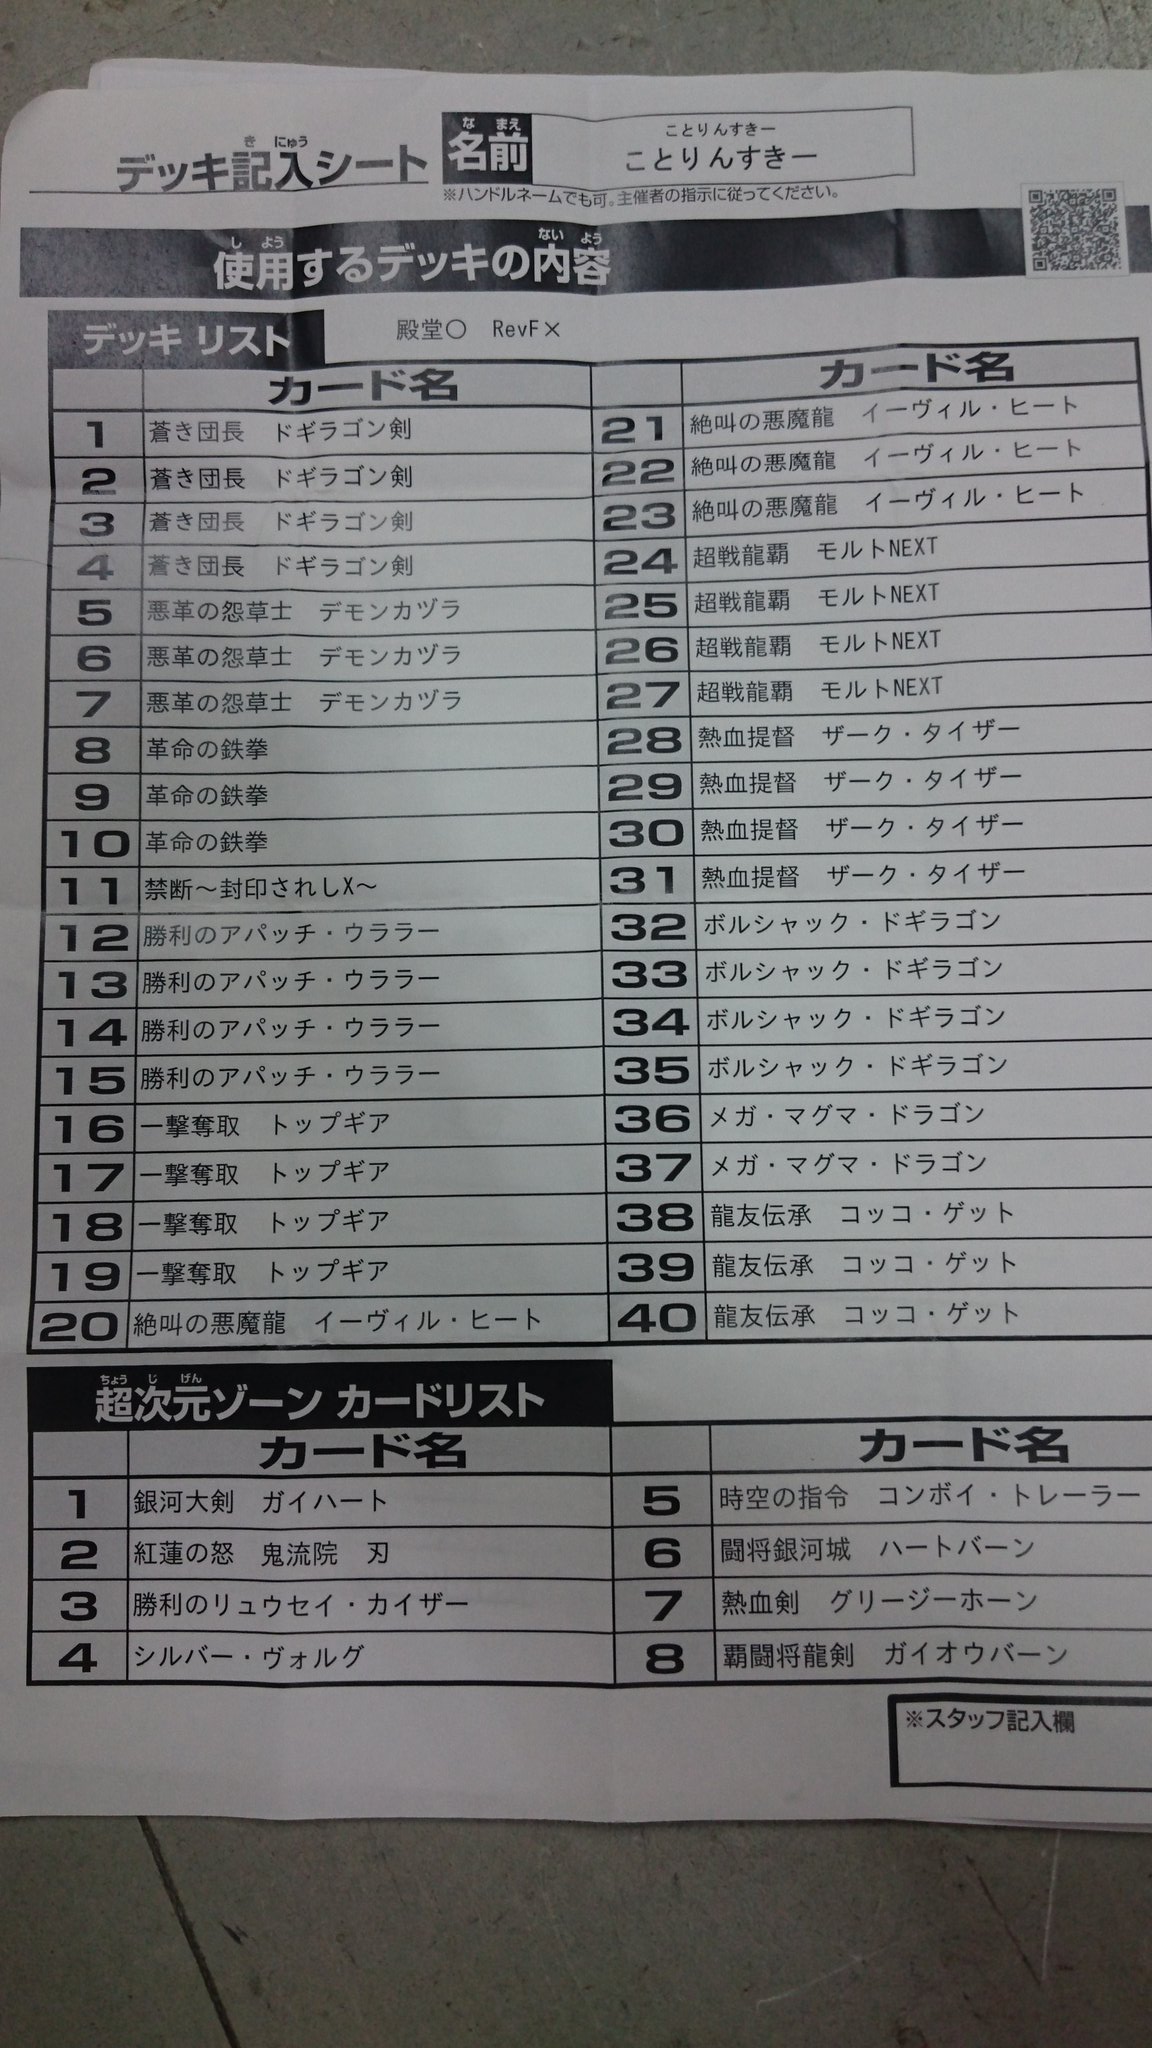 デッキ記入シート
き にゅう
名前
な まえ
ことりんすきー
ことりんすきー
※ハンドルネームでも可。主催者の指示に従ってください。
使用するデッキの内容
し よう ない よう
デッキ リスト
殿堂〇 RevF×
カード名
1 蒼き団長 ドギラゴン剣
2 蒼き団長 ドギラゴン剣
3 蒼き団長 ドギラゴン剣
4 蒼き団長 ドギラゴン剣
5 悪革の怨草士 デモンカヅラ
6 悪革の怨草士 デモンカヅラ
7 悪革の怨草士 デモンカヅラ
8 革命の鉄拳
9 革命の鉄拳
10 革命の鉄拳
11 禁断～封印されしX～
12 勝利のアパッチ・ウララー
13 勝利のアパッチ・ウララー
14 勝利のアパッチ・ウララー
15 勝利のアパッチ・ウララー
16 一撃奪取 トップギア
17 一撃奪取 トップギア
18 一撃奪取 トップギア
19 一撃奪取 トップギア
20 絶叫の悪魔龍 イーヴィル・ヒート
カード名
21 絶叫の悪魔龍 イーヴィル・ヒート
22 絶叫の悪魔龍 イーヴィル・ヒート
23 絶叫の悪魔龍 イーヴィル・ヒート
24 超戦龍覇 モルトNEXT
25 超戦龍覇 モルトNEXT
26 超戦龍覇 モルトNEXT
27 超戦龍覇 モルトNEXT
28 熱血提督 ザーク・タイザー
29 熱血提督 ザーク・タイザー
30 熱血提督 ザーク・タイザー
31 熱血提督 ザーク・タイザー
32 ボルシャック・ドギラゴン
33 ボルシャック・ドギラゴン
34 ボルシャック・ドギラゴン
35 ボルシャック・ドギラゴン
36 メガ・マグマ・ドラゴン
37 メガ・マグマ・ドラゴン
38 龍友伝承 コッコ・ゲット
39 龍友伝承 コッコ・ゲット
40 龍友伝承 コッコ・ゲット
超次元ゾーン カードリスト
ちょう じ げん
カード名
1 銀河大剣 ガイハート
2 紅蓮の怒 鬼流院 刃
3 勝利のリュウセイ・カイザー
4 シルバー・ヴォルグ
カード名
5 時空の指令 コンボイ・トレーラー
6 闘将銀河城 ハートバーン
7 熱血剣 グリージーホーン
8 覇闘将龍剣 ガイオウバーン
※スタッフ記入欄